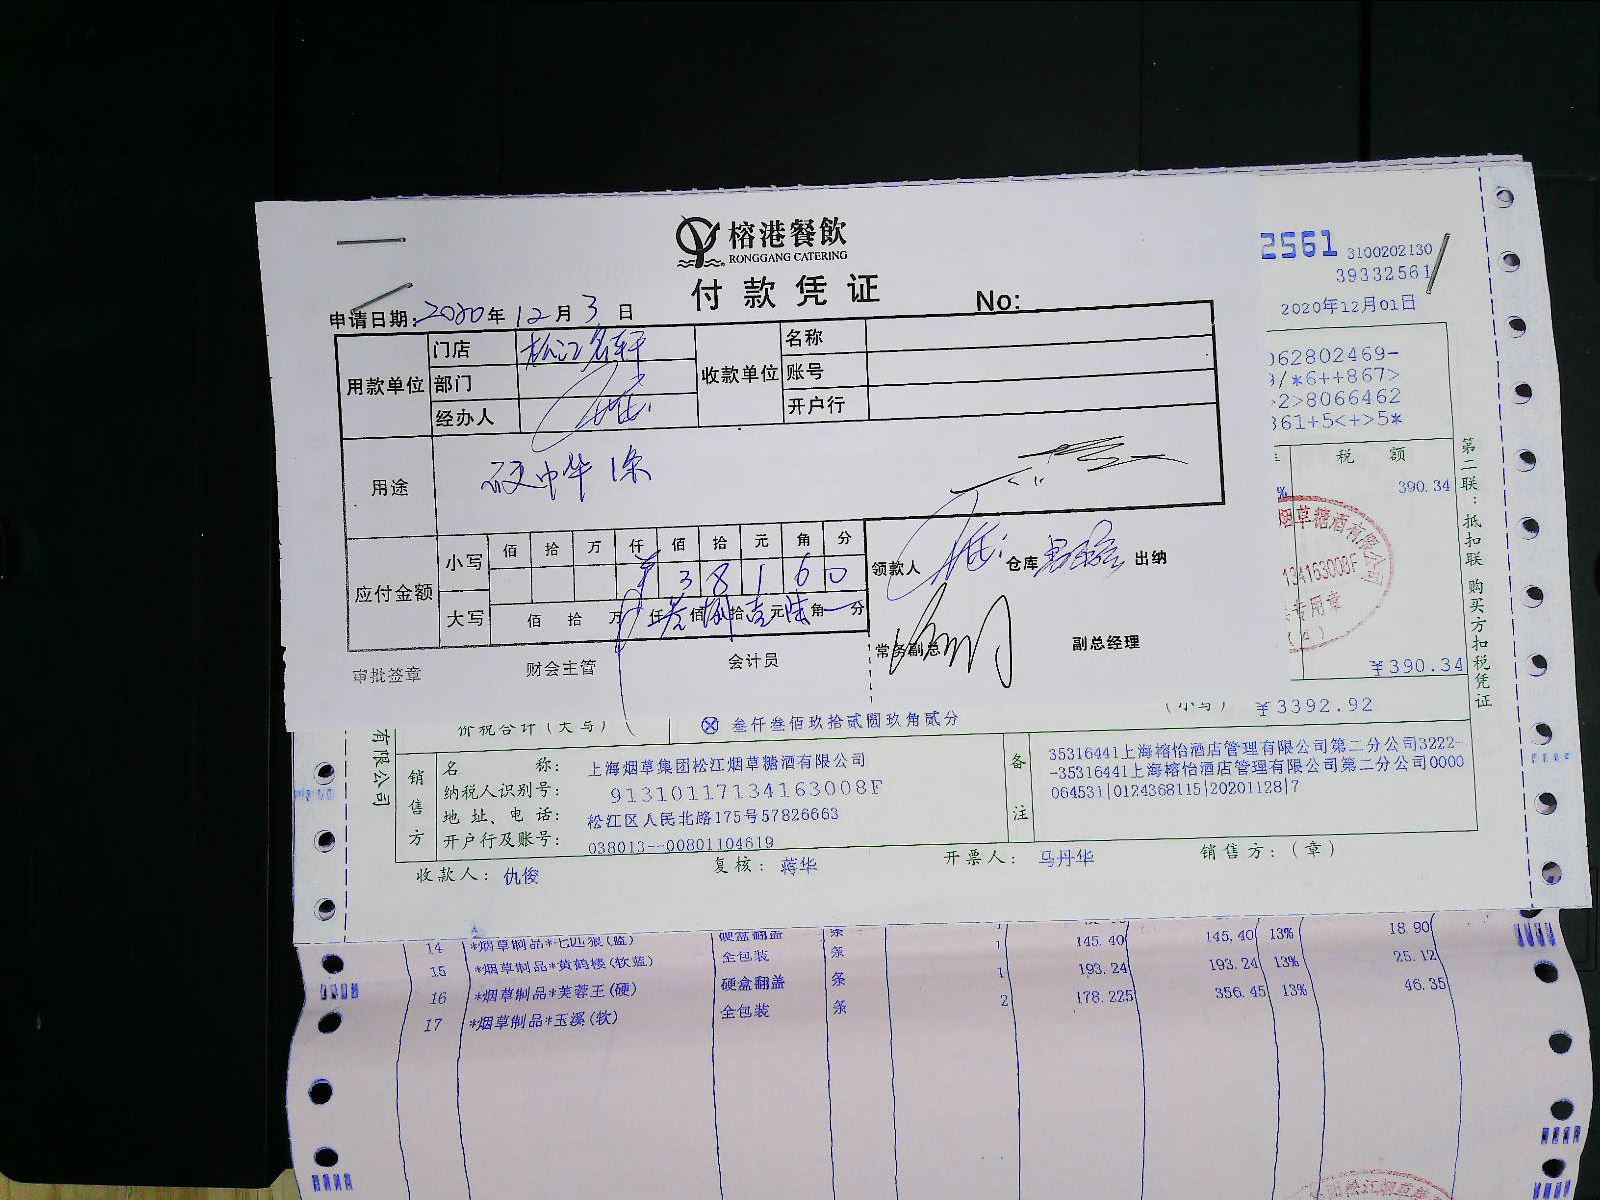 榕港餐飲
RONGGANG CATERING
付款凭证
No:
申请日期: 2020年12月3日
用款单位 门店 松江名轩
部门
经办人
收款单位 名称
账号
开户行
用途 硬中华1条
应付金额 小写 佰 拾 万 仟 佰 拾 元 角 分
¥ 3 8 1 6 0
大写 佰 拾 万 仟 叁佰 捌拾 壹元 陆角 分
领款人 仓库 出纳
常务副总 副总经理
审批签章 财会主管 会计员
2561 3100202130
39332561
2020年12月01日
062802469-
/*6++867>
>2>8066462
361+5<+>5*
税 额
% 390.34
烟草糖酒有限公司
134163008F
专用章
¥390.34
第二联：抵扣联 购买方扣税凭证
价税合计(大写) ⊗ 叁仟叁佰玖拾贰圆玖角贰分 (小写) ¥3392.92
有限公司
销售方
名 称: 上海烟草集团松江烟草糖酒有限公司
纳税人识别号: 91310117134163008F
地 址、电 话: 松江区人民北路175号57826663
开户行及账号: 038013--00801104619
备注
35316441上海榕怡酒店管理有限公司第二分公司3222-
-35316441上海榕怡酒店管理有限公司第二分公司0000
064531|0124368115|20201128|7
收款人: 仇俊 复核: 蒋华 开票人: 马丹华 销售方: (章)
14 *烟草制品*七匹狼(蓝) 硬盒翻盖 条 1 145.40 145.40 13% 18.90
15 *烟草制品*黄鹤楼(软蓝) 全包装 条 1 193.24 193.24 13% 25.12
16 *烟草制品*芙蓉王(硬) 硬盒翻盖 条 2 178.225 356.45 13% 46.35
17 *烟草制品*玉溪(软) 全包装 条